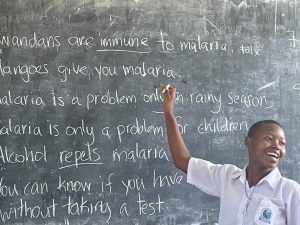 wandans are immune to malaria.
Mangoes give you malaria.
malaria is a problem only in rainy season.
Malaria is only a problem for children.
Alcohol repels malaria
You can know if you have
without taking a test.